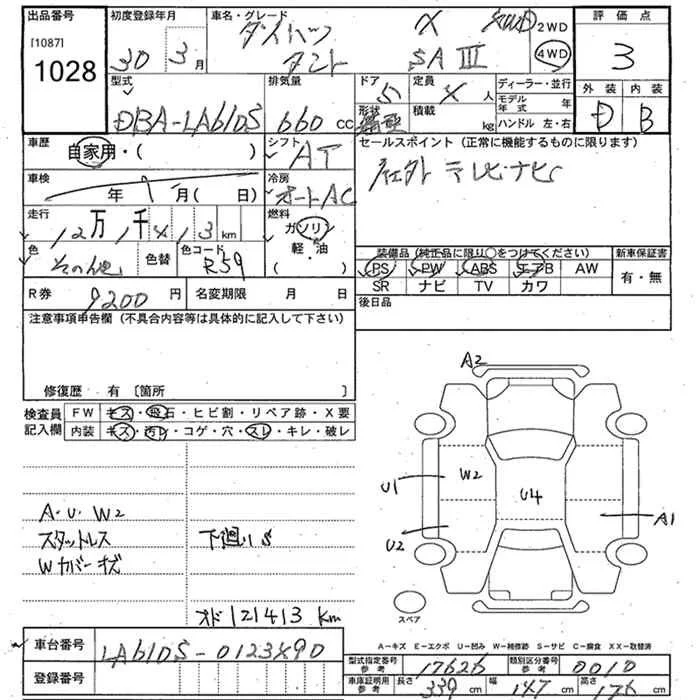 出品番号 初度登録年月 車名・グレード 評価点
[1087]
1028
30年 3月 ダイハツ タント X 4WD SAIII 2WD 4WD
3
型式 排気量 ドア 定員 ディーラー・並行 外装 内装
DBA-LA610S 660 cc 5 4人 モデル年式 年
D B
形状 積載 kg ハンドル 左・右
車歴 自家用・( ) シフト AT セールスポイント (正常に機能するものに限ります)
車検 年 月( 日) 冷房 オートAC
社外 テレビ・ナビ
走行 12万1千413km 燃料 ガソリン
軽・油
( )
色 その他 色替 色コード R59
装備品 (純正品に限り○をつけてください) 新車保証書
PS PW ABS エアB AW 有・無
SR ナビ TV カワ
R券 9200円 名変期限 月 日
後日品
注意事項申告欄 (不具合内容等は具体的に記入して下さい)
修復歴 有 〔箇所 〕
検査員記入欄 FW キズ・飛石・ヒビ割・リペア跡・X要
内装 キズ・汚レ・コゲ・穴・スレ・キレ・破レ
A2
U1 W2 U4 A1
U2
A・U・W2
スタットレス 下廻りS
Wカバーキズ
オド 121413 km
スペア
A=キズ E=エクボ U=凹み W=補修跡 S=サビ C=腐食 XX=取替済
車台番号 LA610S-0123X90
登録番号
型式指定番号 参考 17626 類別区分番号 参考 0010
車庫証明用 参考 長さ 339 cm 幅 147 cm 高さ 175 cm